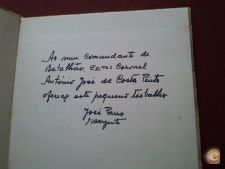 Ao meu Comandante de
Batalhão, Exmº Coronel
António José da Costa Pinto
ofereço este pequeno trabalho
José Parro